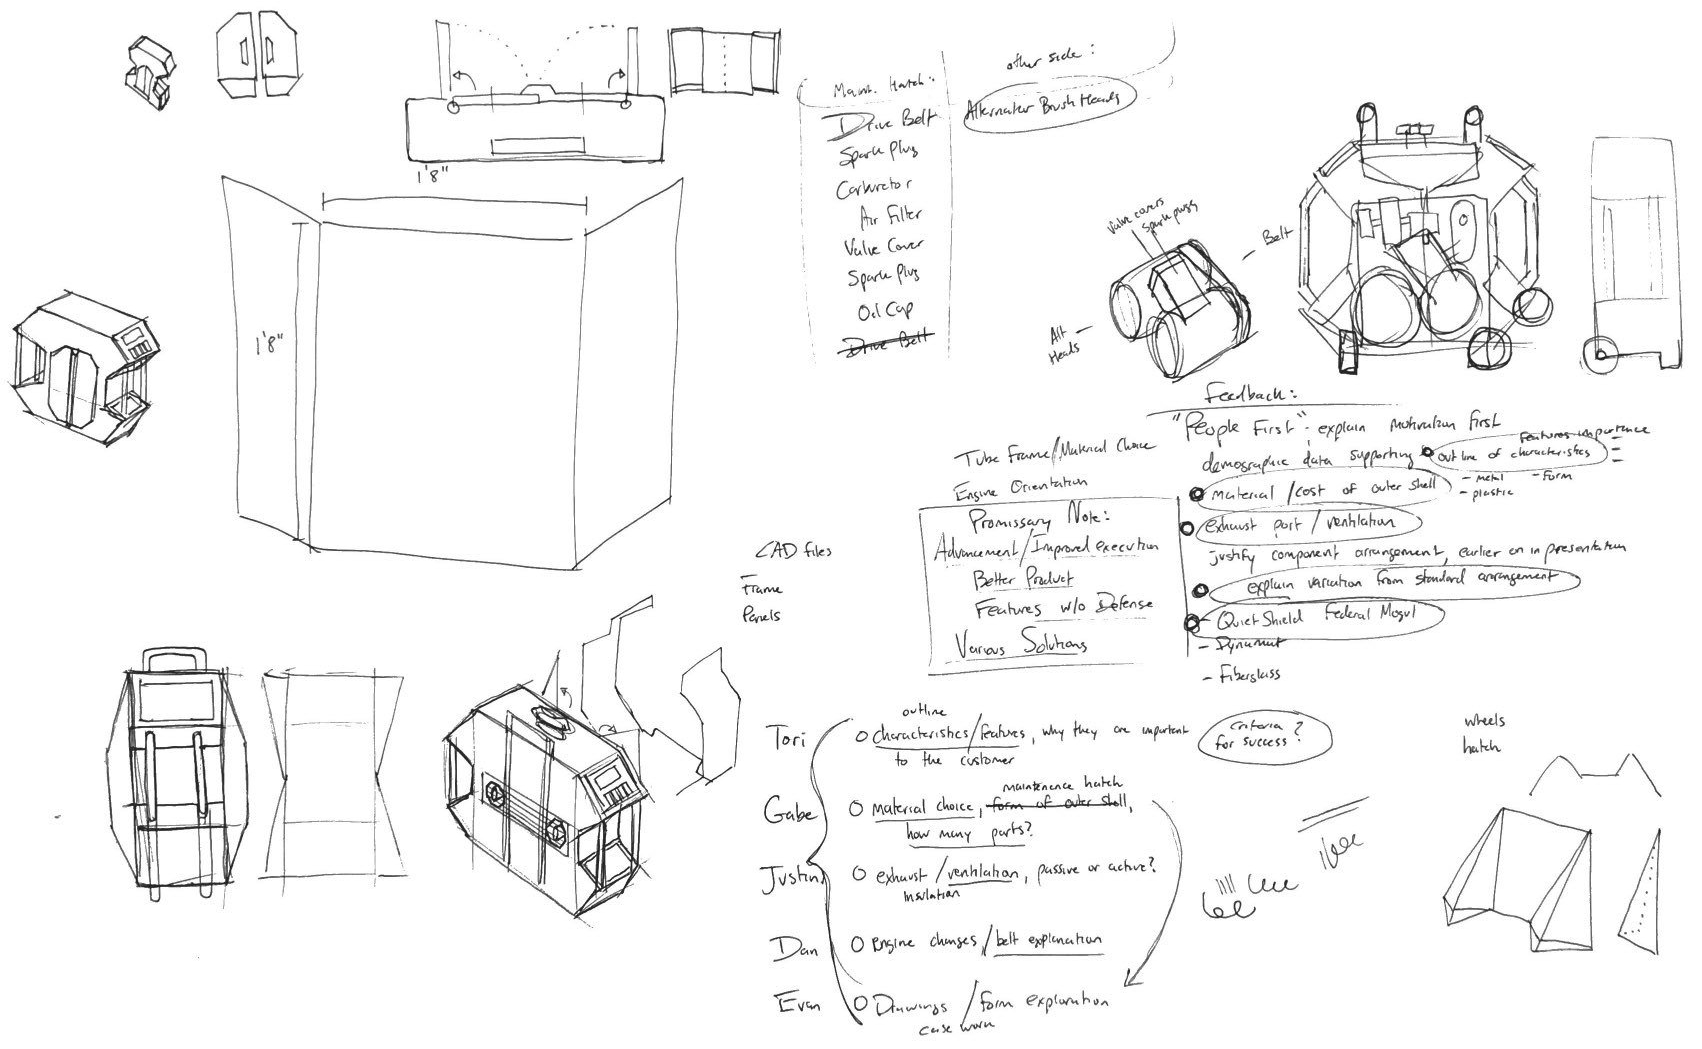 Maint. Hatch:
Drive Belt
Spark Plug
Carburetor
Air Filter
Valve Cover
Spark Plug
Oil Cap
Drive Belt
other side:
Alternator Brush Heads
1'8"
1'8"
Valve covers
Spark plugs
Belt
Alt
Heads
Feedback:
"People First" - explain motivation first
demographic data supporting
Features importance
outline of characteristics
material / cost of outer shell
- metal
- plastic
- form
exhaust port / ventilation
justify component arrangement, earlier on in presentation
explain variation from standard arrangement
- QuietShield Federal Mogul
- Dynamat
- Fiberglass
Tube Frame/Material Choice
Engine Orientation
Promissary Note:
Advancement/Improved execution
Better Product
Features w/o Defense
Various Solutions
CAD files
Frame
Panels
Tori
outline
characteristics/features, why they are important
to the customer
criteria
for success?
Gabe
maintenence hatch
material choice, form of outer shell,
how many parts?
Justin
exhaust/ventilation, passive or active?
insulation
Dan
engine changes/belt explanation
Evan
Drawings / form exploration
case work
wheels
hatch